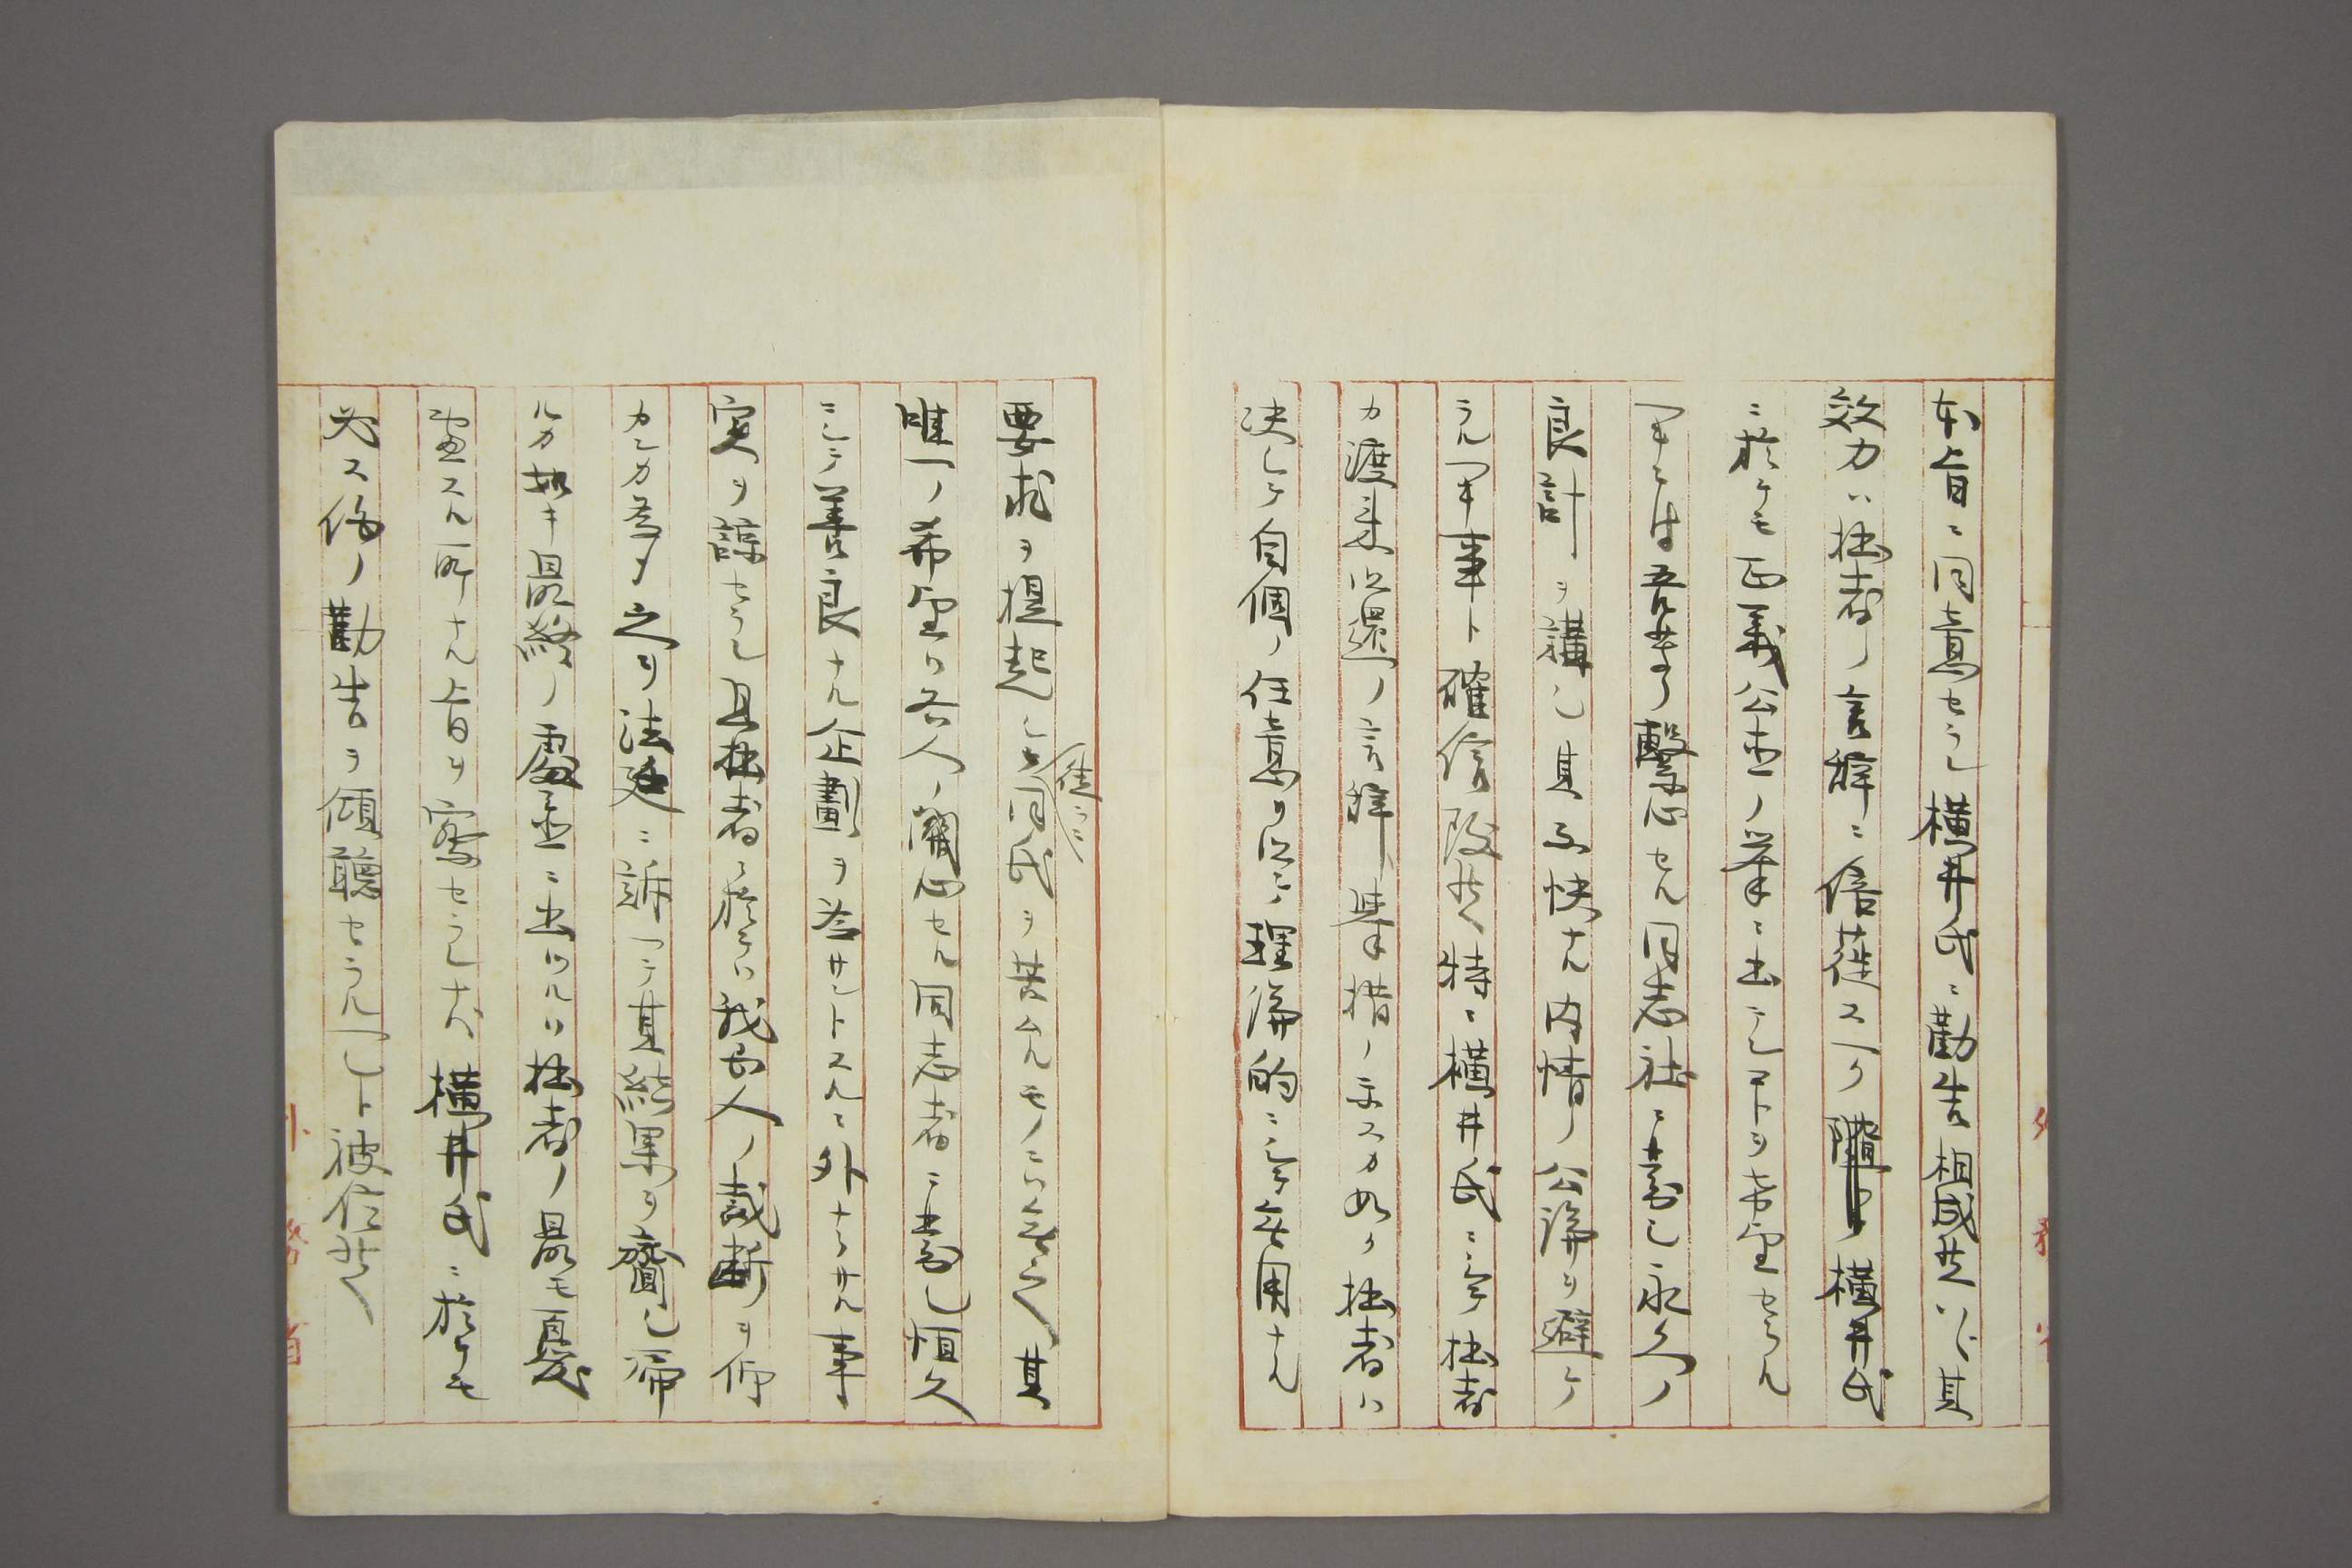 本旨ニ同意セラレ横井氏ニ勧告相成候ハヽ其
效力ハ拙者ノ言辞ニ倍蓰スヘク隨テ横井氏
ニ於テモ正義公直ノ挙ニ出ラレンヿヲ希望セラル
ヘキニ付吾等ノ繋心セル同志社ニ対シ永久ノ
良計ヲ講シ其不快ナル内情ノ公論ヲ避ケ
ラルヘキ事ト確信致候特ニ横井氏ニシテ拙者
カ渡来以還ノ言辞挙措ノ示スカ如ク拙者ハ
決シテ自個ノ任意ヲ以テ理論的ニシテ無用ナル
要求ヲ提起シ徒ラニ同氏ヲ苦ムルモノニ無之其
唯一ノ希望ハ吾人ノ関心セル同志社ニ対シ恒久
ニシテ善良ナル企劃ヲ為サントスルニ外ナラサル事
実ヲ諒セラレ且拙者ニ於テハ我本人ノ裁断ヲ仰
カンカ為メ之ヲ法廷ニ訴ヘテ其結果ヲ齎シ帰
ルカ如キ最終ノ處置ニ出ツルハ拙者ノ最モ憂
慮スル所ナル旨ヲ察セラレナハ横井氏ニ於テモ
必ス伯ノ勧告ヲ傾聴セラルヘシト被信候
外務省
外務省